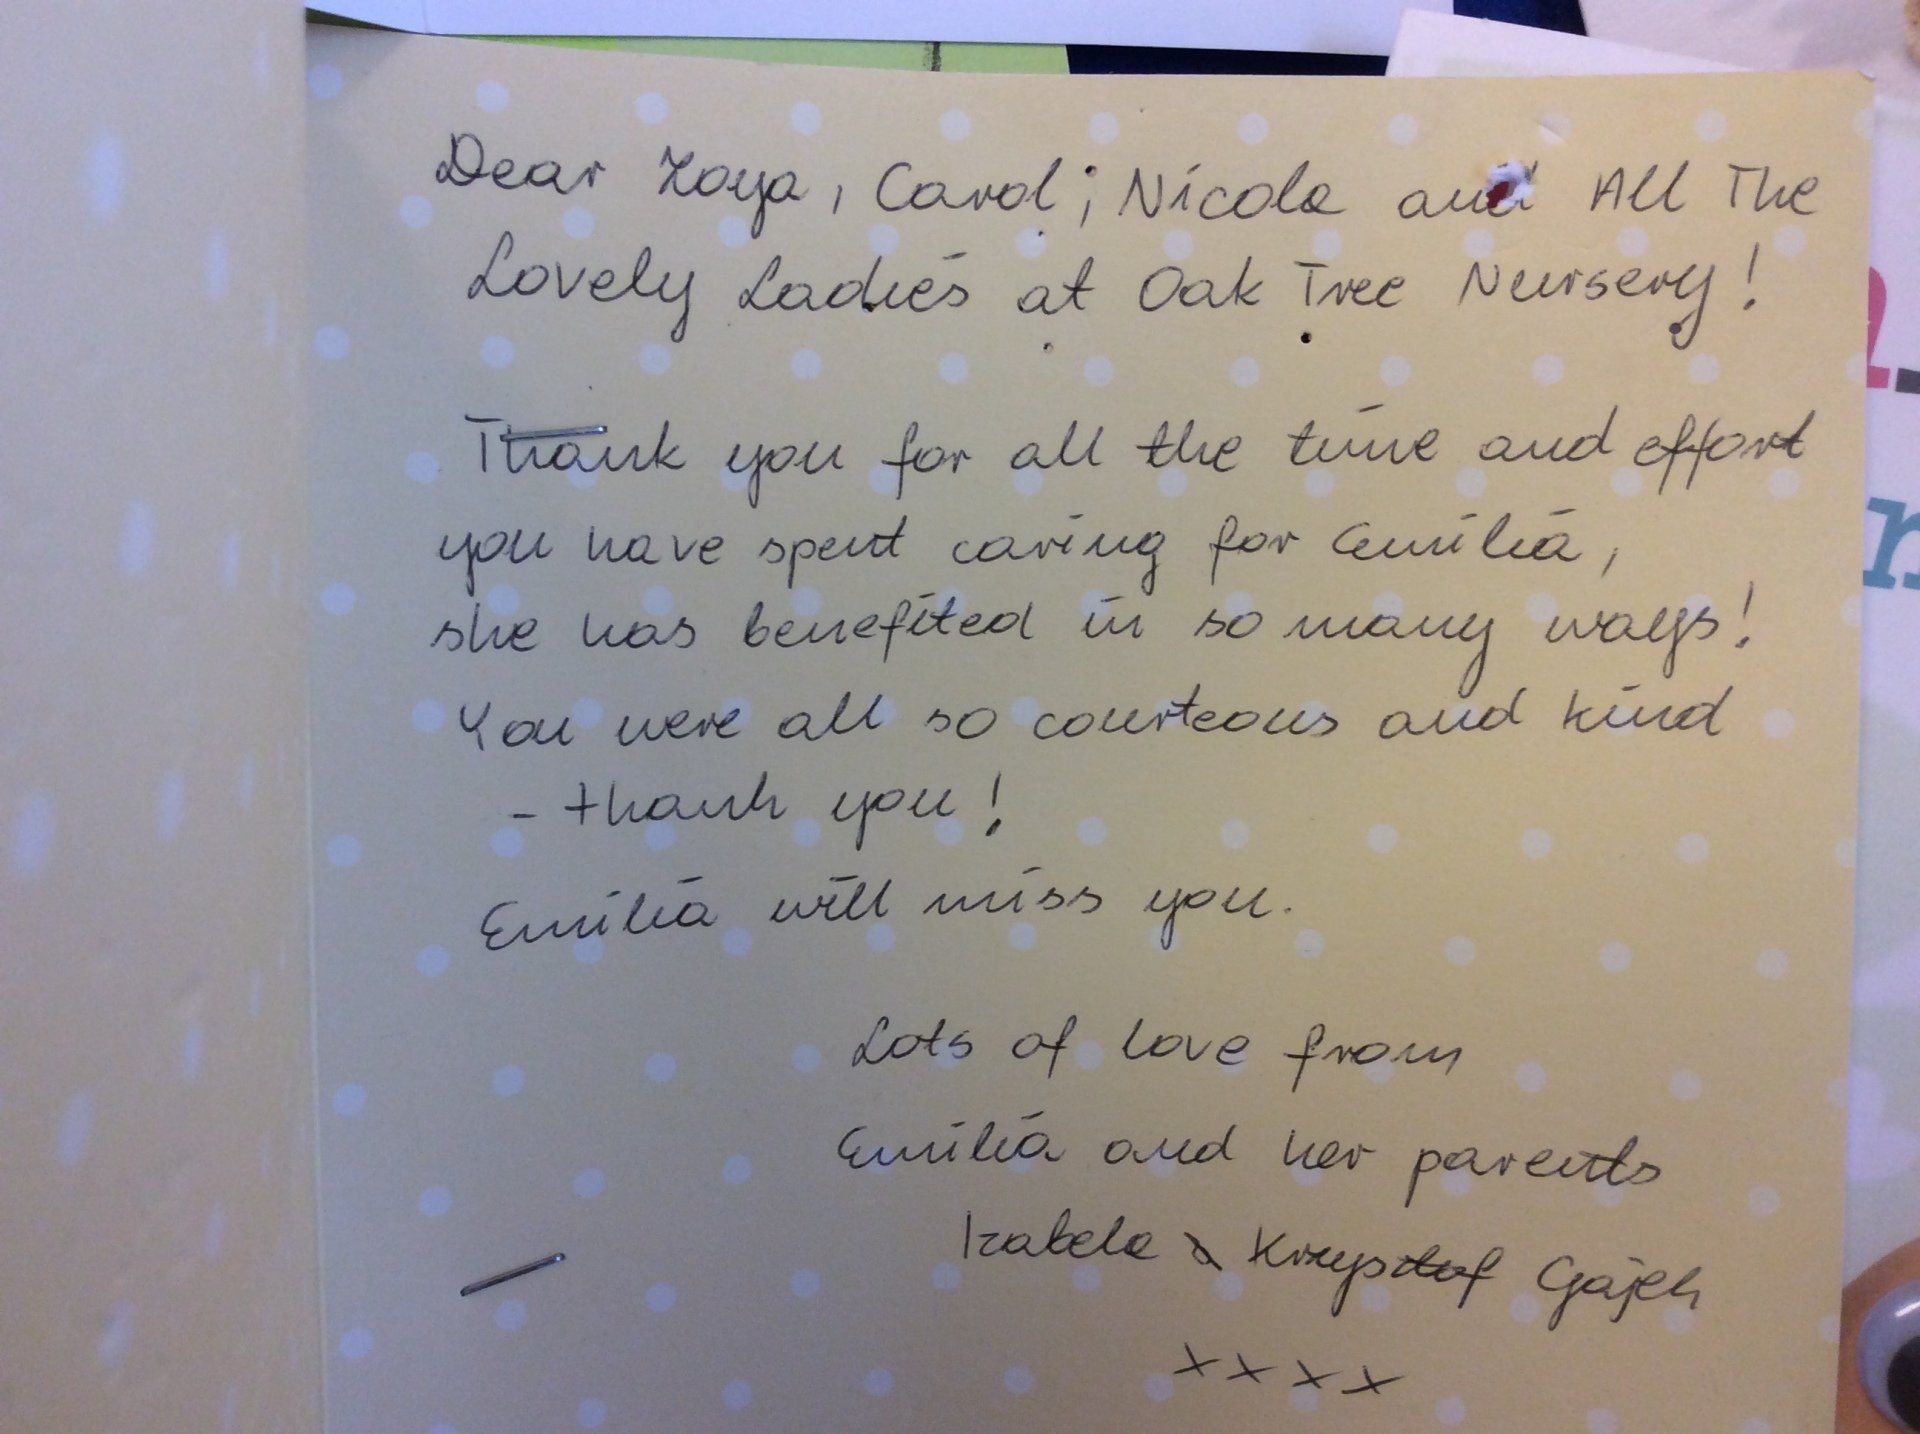 Dear Zoya, Carol, Nicola and All The
Lovely Ladies at Oak Tree Nursery!
Thank you for all the time and effort
you have spent caring for Emilia,
she has benefited in so many ways!
You were all so courteous and kind
- thank you!
Emilia will miss you.
Lots of love from
Emilia and her parents
Izabela & Krzysztof
xxxx